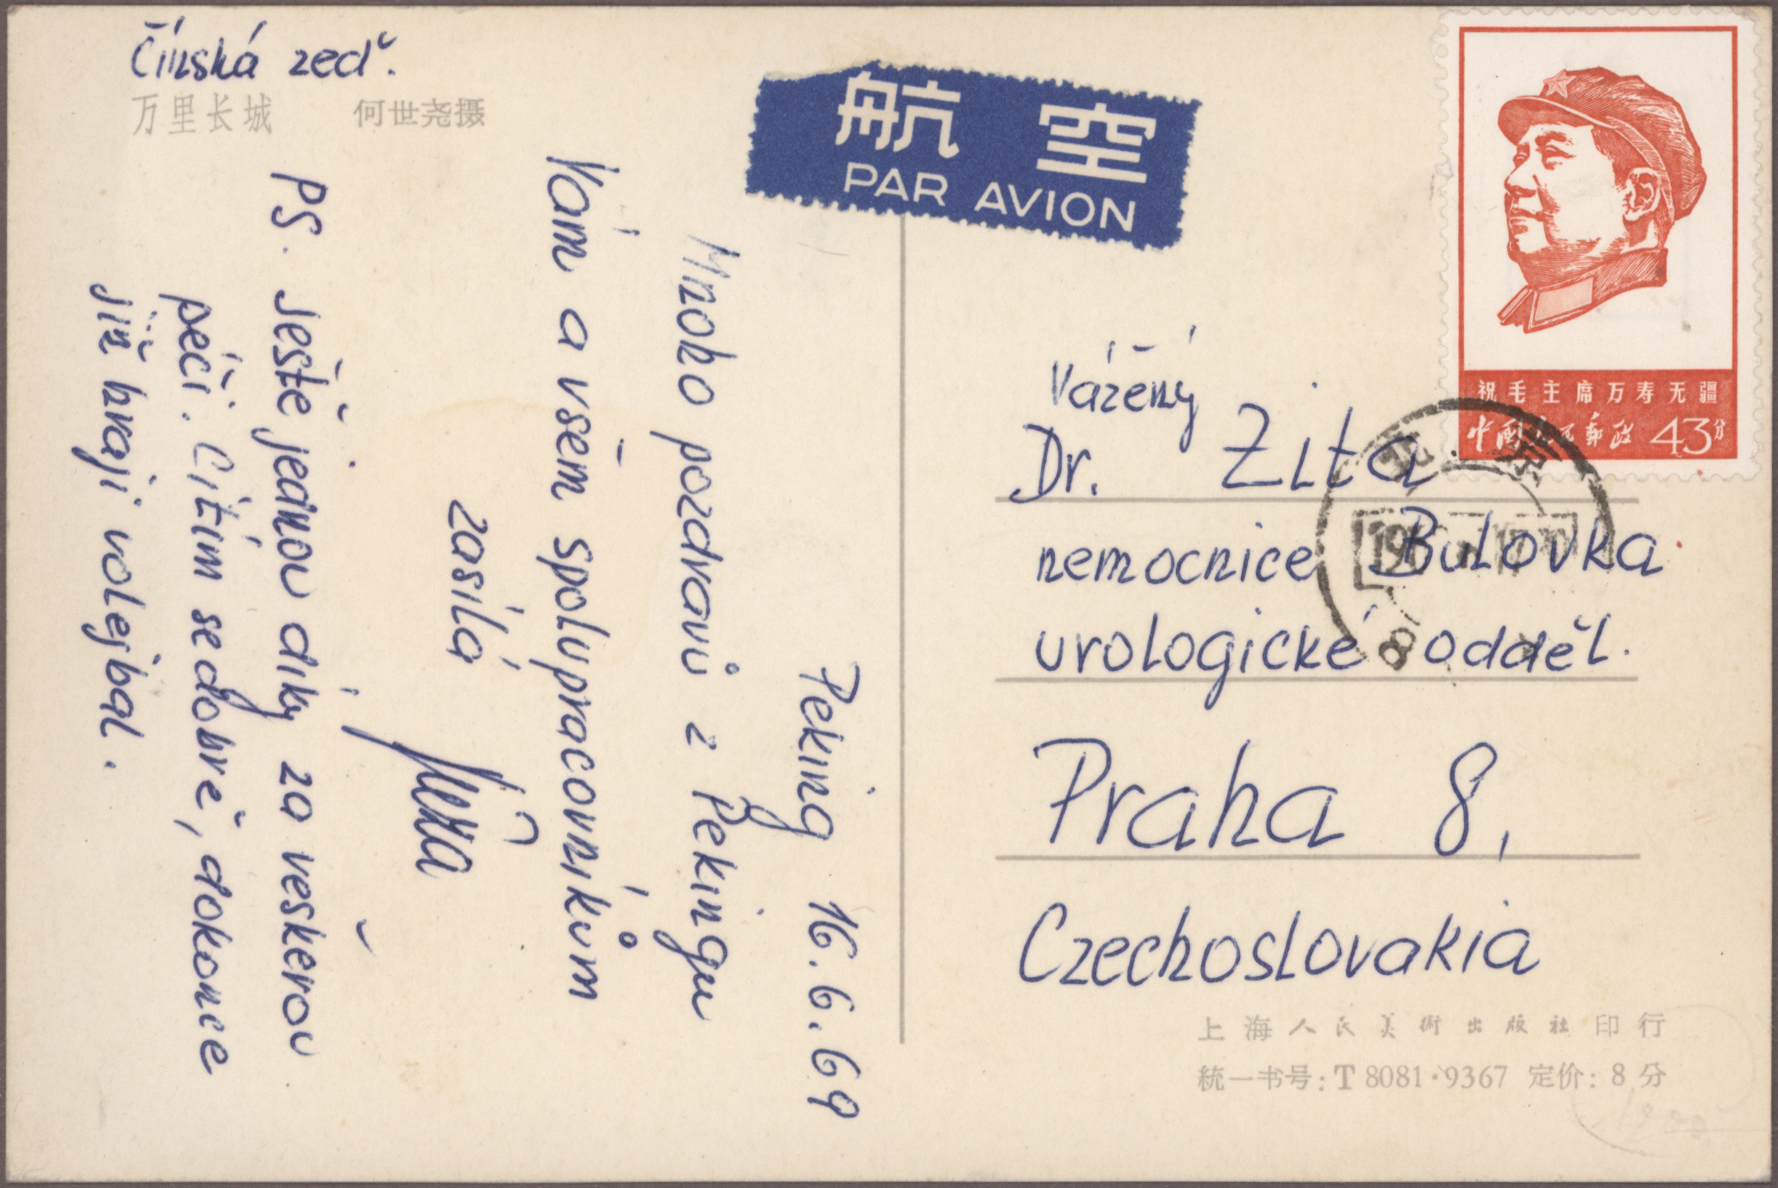 Čínská zeď.
万里长城 何世尧摄
航空
PAR AVION
祝毛主席万寿无疆
中国人民邮政 43分
北京
Peking 16.6.69
Mnoho pozdravů z Pekingu
Vám a všem spolupracovníkům
zasílá
PS. Ještě jednou díky za veškerou
péči. Cítím se dobře, dokonce
již hraji volejbal.
Vážený
Dr. Zita
nemocnice Bulovka
urologické odděl.
Praha 8,
Czechoslovakia
上海人民美術出版社印行
統一书号: T 8081·9367 定价: 8 分